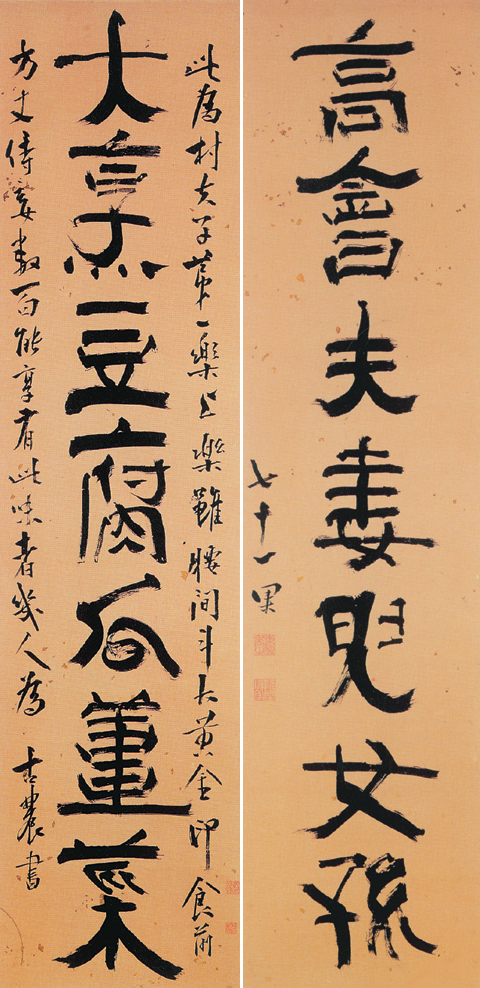 大烹豆腐瓜薑菜
高會夫妻兒女孫
此爲村夫子第一樂上樂雖腰間斗大黃金印食前
方丈侍妾數百能享有此味者幾人爲 古農書
七十一果